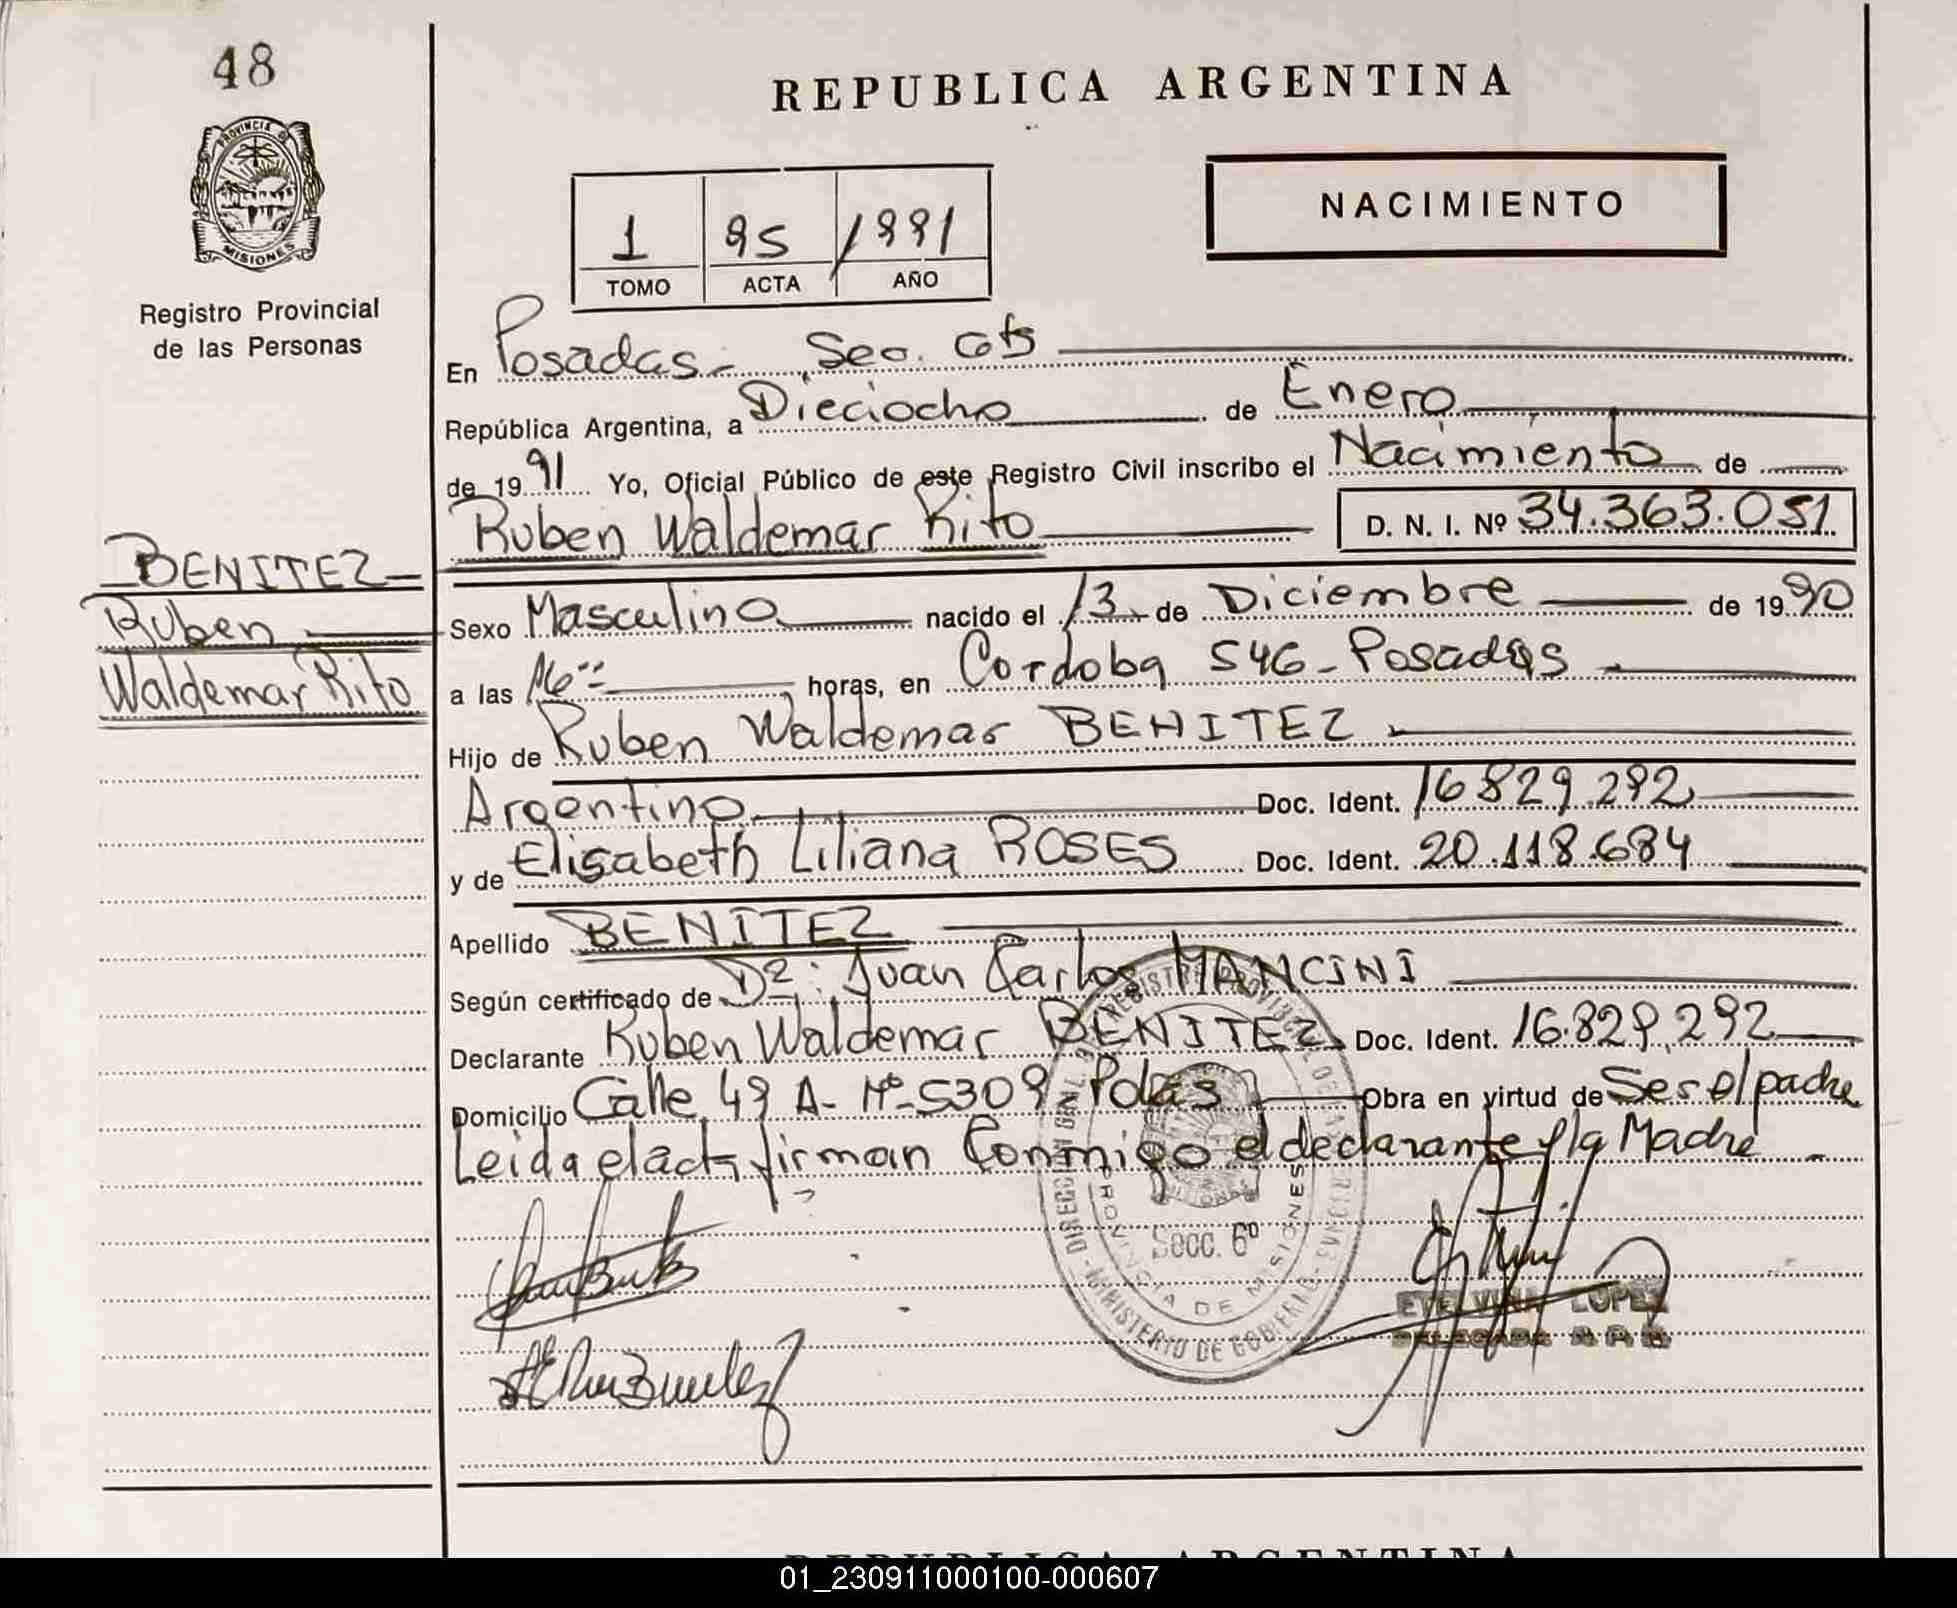 48
REPUBLICA ARGENTINA
PROVINCIA DE
MISIONES
NACIMIENTO
1 95 1991
TOMO ACTA AÑO
Registro Provincial
de las Personas
En Posadas.- Sec. 6ta
República Argentina, a Dieciocho de Enero
de 1991 Yo, Oficial Público de este Registro Civil inscribo el Nacimiento de
Ruben Waldemar Rito D. N. I. Nº 34.363.051
BENITEZ
Ruben
Waldemar Rito
Sexo Masculino nacido el 13 de Diciembre de 1990
a las 16 horas, en Cordoba 546 - Posadas
Hijo de Ruben Waldemar BENITEZ
Argentino Doc. Ident. 16.829.292
y de Elisabeth Liliana ROSES Doc. Ident. 20.118.684
Apellido BENITEZ
Según certificado de Dr: Juan Carlos MANCINI
Declarante Ruben Waldemar BENITEZ Doc. Ident. 16.829.292
Domicilio Calle 49 A- Nº-5309 - Pdas Obra en virtud de Ser el padre
Leida el acta firman Conmigo el declarante y la Madre
DIRECCION GRAL. REGISTRO PROVINCIAL DE LAS PERSONAS - MINISTERIO DE GOBIERNO
PROVINCIA DE MISIONES
Secc. 6º
ETELVINA LOPEZ
DELEGADA
REPUBLICA ARGENTINA
01_230911000100-000607